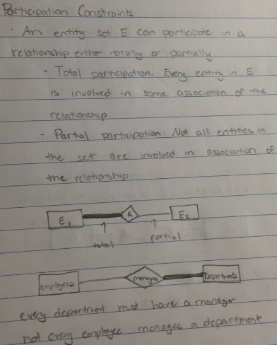 Participation Constraints
- An entity set E can participate in a
relationship either totally or partially
- Total participation: Every entity in E
is involved in some association of the
relationship
- Partial participation: Not all entities in
the set are involved in association of
the relationship
E₁ R E₂
total partial
employees manages Departments
every department must have a manager
not every employee manages a department